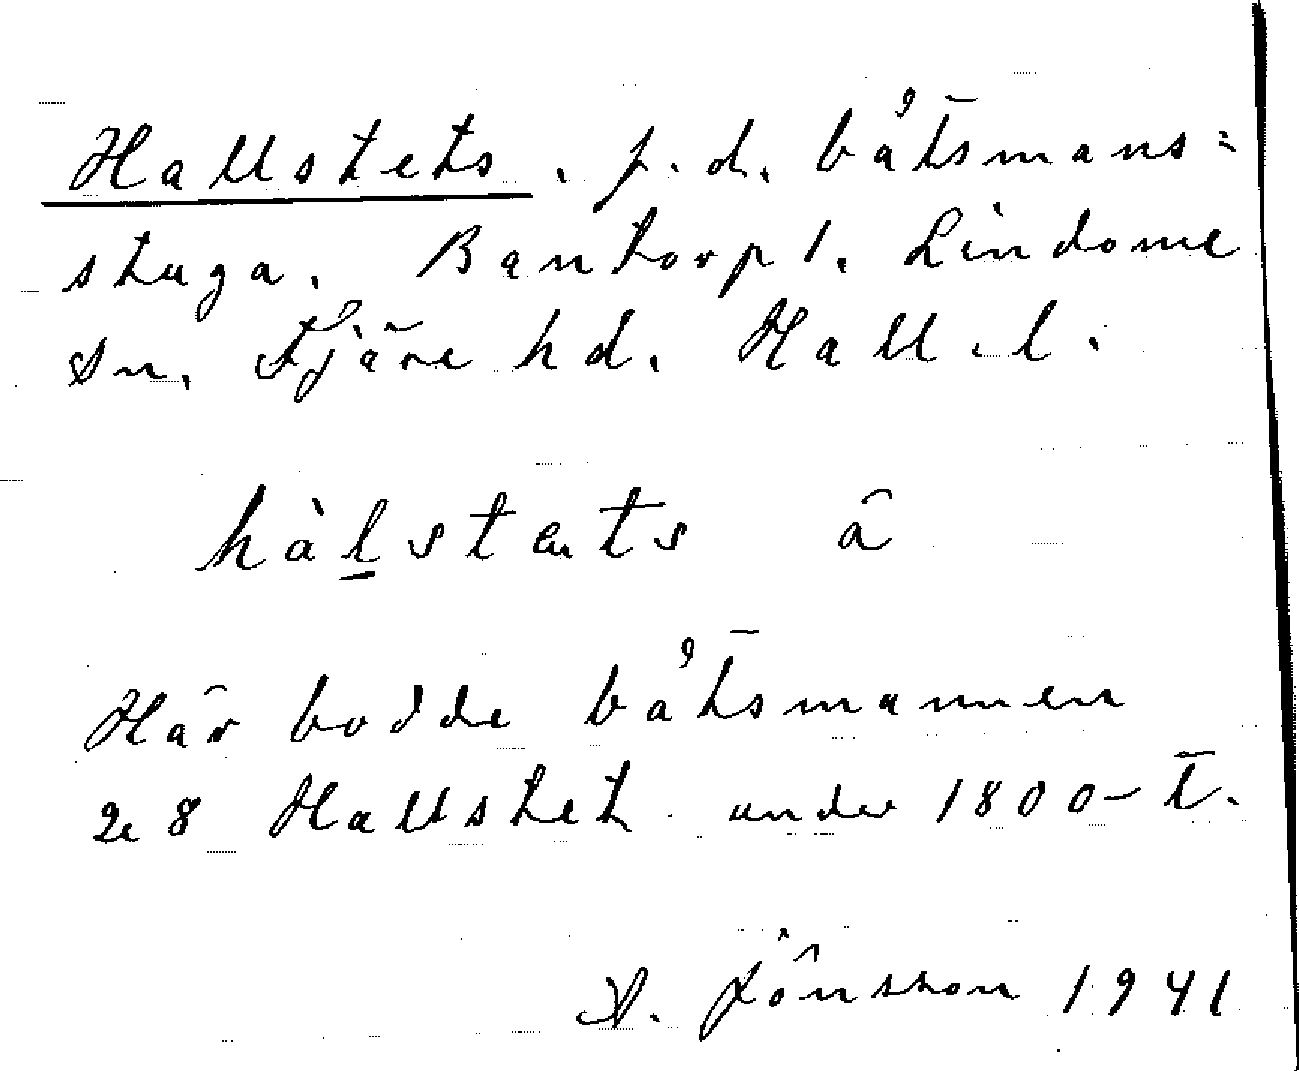 Hallstets. f.d. båtsmans=
stuga. Bantorp 1. Lindome
sn. Fjäre hd. Hall. l.
hàlstæts â
Här bodde båtsmannen
28 Hallstet under 1800-t.
A. Jönsson 1941